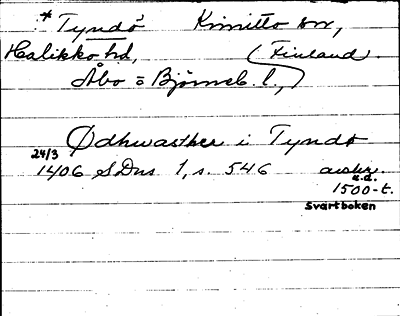 * Tyndö Kimitto sn,
Halikko hd, (Finland)
Åbo o Björneb. l.,
Ødhwasther i Tyndö
24/3
1406 SDns 1, s. 546 avskr.
u.d.
1500-t.
Svartboken